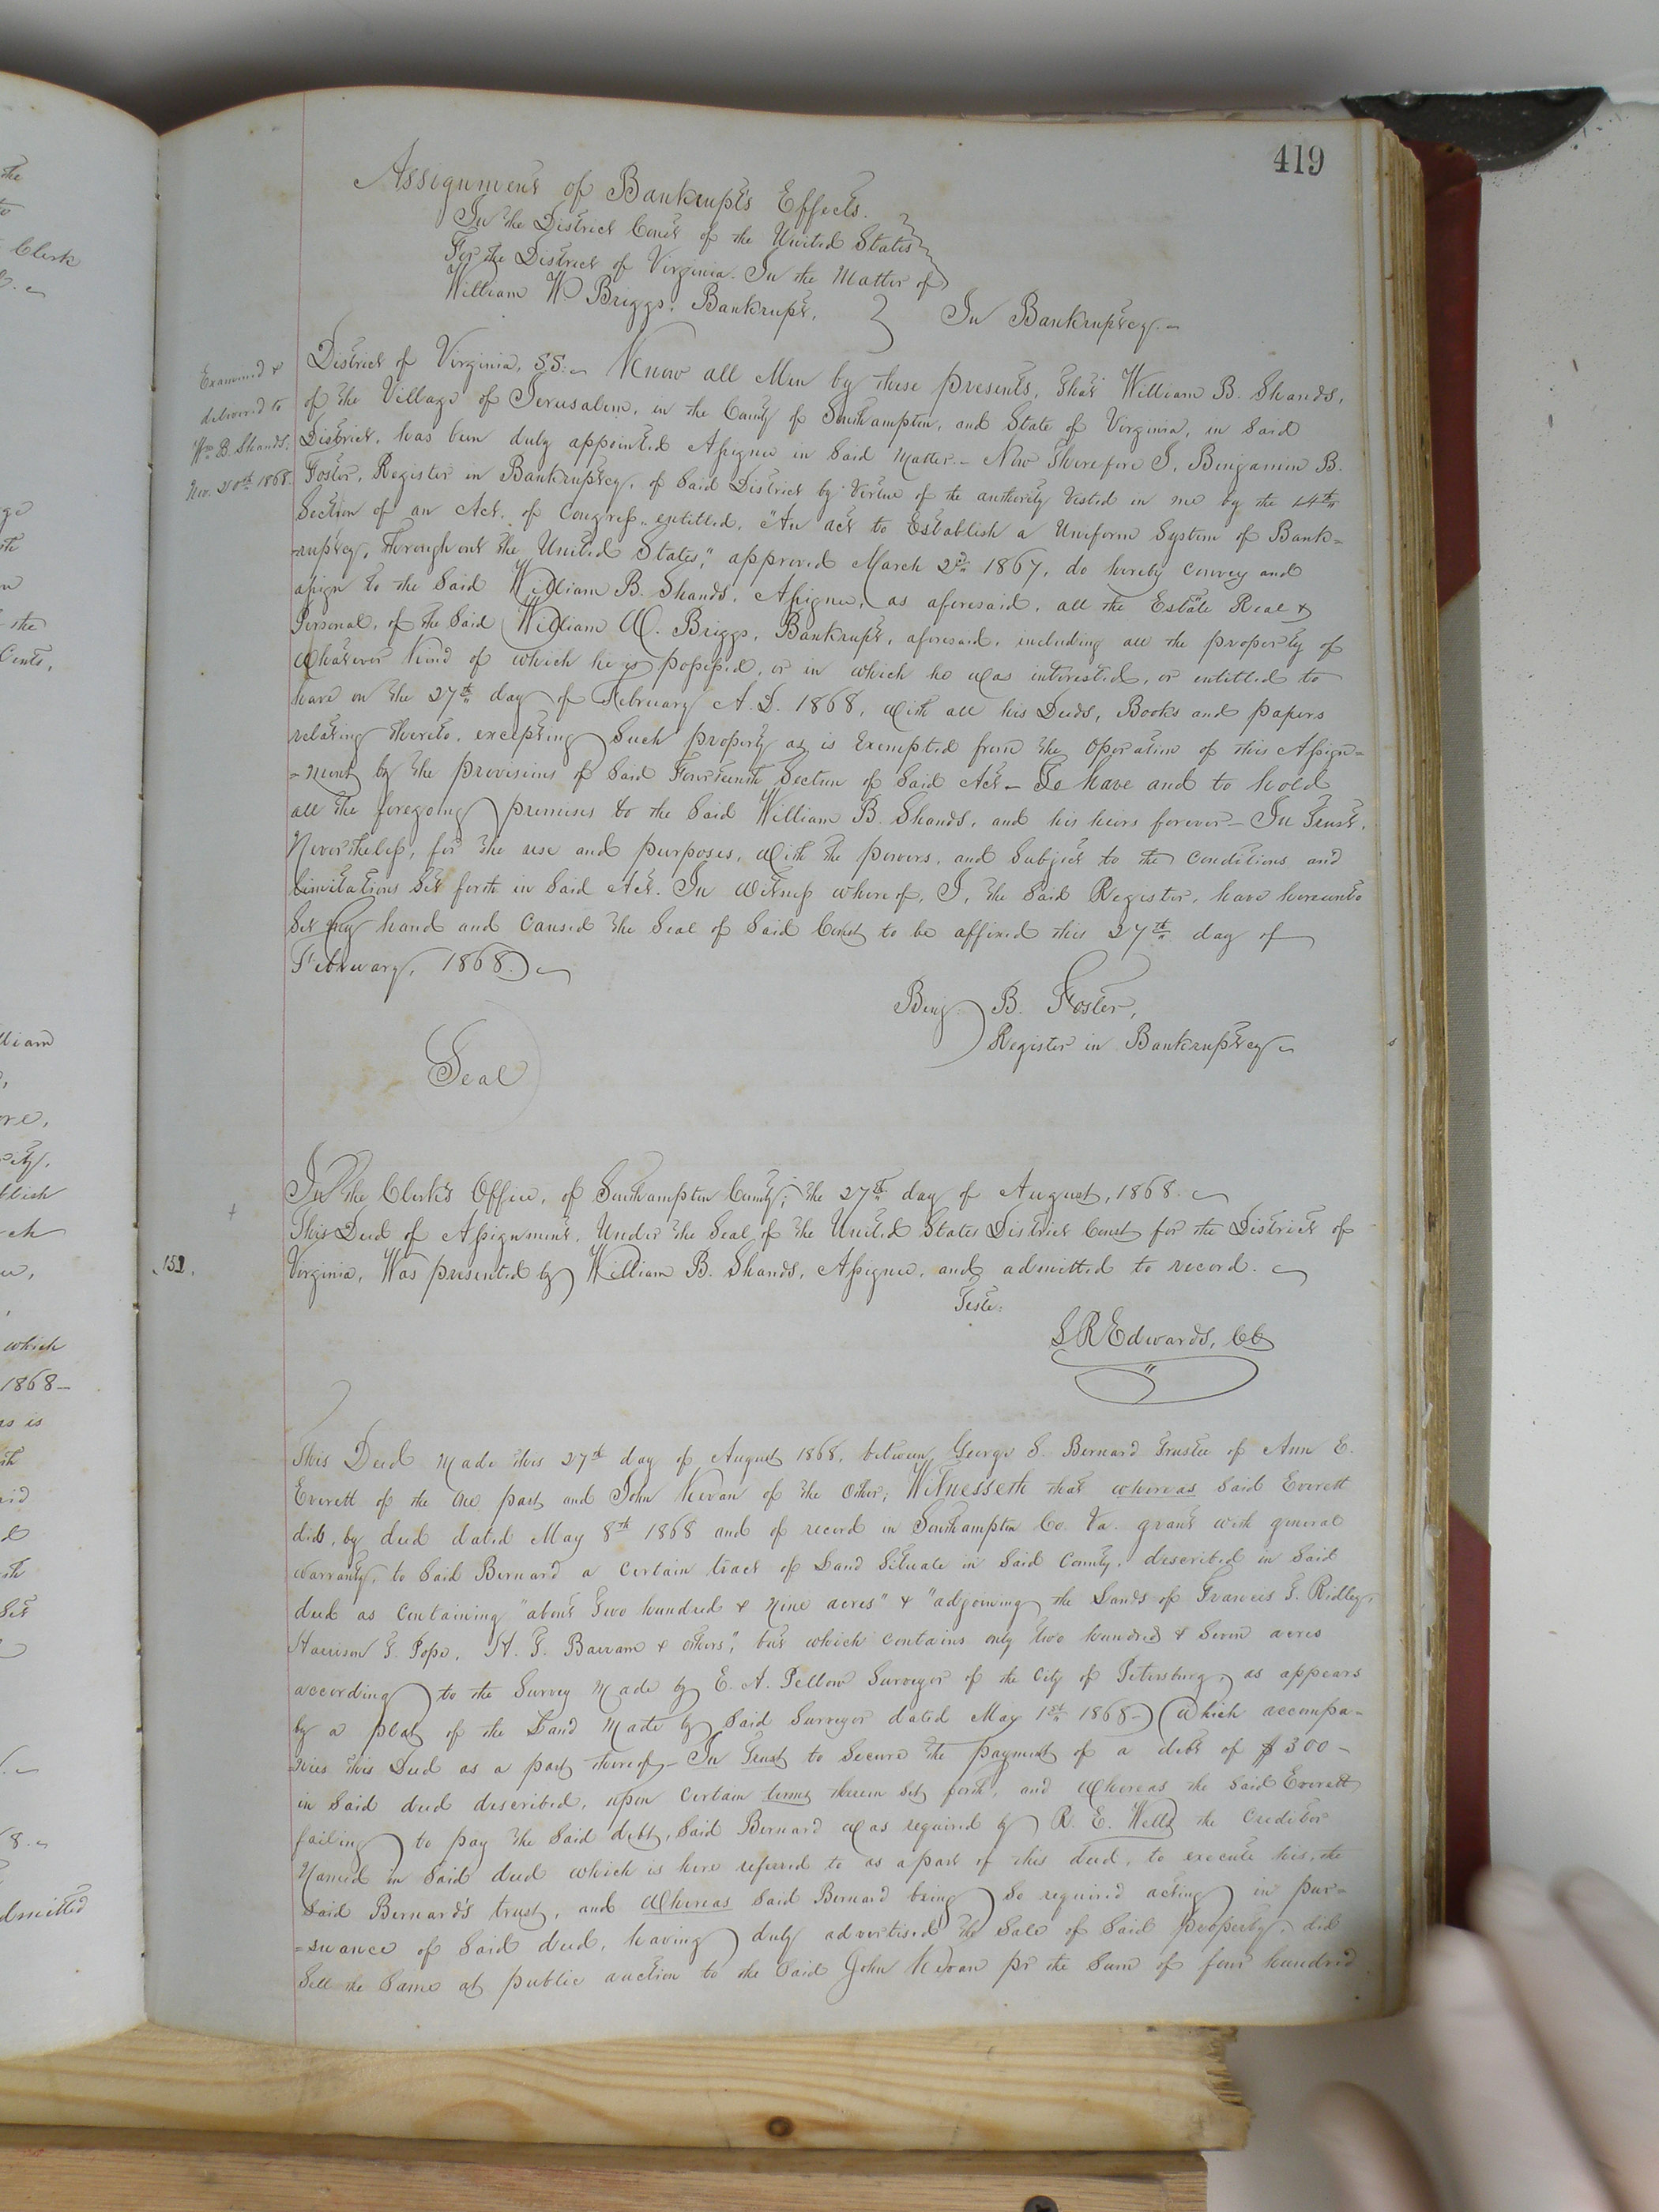 419
Assignment of Bankrupts Effects.
In the District Court of the United States
For the District of Virginia. In the Matter of
William W. Briggs, Bankrupt. } In Bankruptcy.
Examined &
delivered to
Wm. B. Shands.
Nov. 20th 1868.
District of Virginia, SS: Know all Men by these presents, that William B. Shands,
of the Village of Jerusalem, in the County of Southampton, and State of Virginia, in Said
District, has been duly appointed Assignee in Said Matter. Now Therefore I, Benjamin B.
Foster, Register in Bankruptcy, of Said District by Virtue of the authority Vested in me by the 14th
Section of an Act. of Congress entitled, "An act to Establish a Uniform System of Bank=
=ruptcy, Throughout the United States," approved March 2d 1867, do hereby convey and
assign to the Said William B. Shands, Assignee, as aforesaid, all the Estate Real &
Personal, of the Said William W. Briggs, Bankrupt, aforesaid, including all the property of
Whatever kind of which he is possessed, or in which he was interested, or entitled to
have on the 27th day of February A.D. 1868, with all his Deeds, Books and papers
relating thereto, excepting Such property as is Exempted from the Operation of this Assign=
=ment by the provisions of Said Fourteenth Section of Said Act - To have and to hold
all the foregoing premises to the Said William B. Shands, and his heirs forever - In Trust,
Nevertheless, for the use and purposes, with the powers, and Subject to the conditions and
limitations Set forth in Said Act. In Witness whereof, I, the Said Register, have hereunto
Set my hand and caused the Seal of Said Court to be affixed this 27th day of
February, 1868.
Benj. B. Foster,
Register in Bankruptcy
Seal
In the Clerk's Office, of Southampton County; the 27th day of August, 1868.
This Deed of Assignment, Under the Seal of the United States District Court for the District of
152.
Virginia, Was presented by William B. Shands, Assignee, and admitted to record.
Teste:
L R Edwards, CC
This Deed Made this 27th day of August 1868, between George S. Bernard Trustee of Ann E.
Everett of the One part and John Kevan of the Other; Witnesseth that whereas Said Everett
did, by deed dated May 8th 1868 and of record in Southampton Co. Va. grant with general
warranty, to Said Bernard a certain tract of Land Situate in Said County, described in Said
deed as containing "about Two hundred & Nine acres" & "adjoining the Lands of Frances T. Ridley,
Harrison T. Pope, H. T. Barram & others", but which contains only two hundred & Seven acres
according to the Survey Made by E. A. Pellow Surveyor of the City of Petersburg, as appears
by a plat of the Land Made by Said Surveyor dated May 1st 1868 - (which accompa=
=nies this Deed as a part thereof - In Trust to Secure the payment of a debt of $300 -
in Said deed described, upon certain terms therein Set forth, and Whereas the Said Everett
failing to pay the Said debt, Said Bernard was required by R. E. Wells the Creditor
Named in Said deed which is here referred to as a part of this deed, to execute his, the
Said Bernard's trust, and Whereas Said Bernard being So required acting in pur=
=suance of Said deed, having duly advertised the Sale of Said property, did
Sell the Same at public auction to the Said John Kevan for the Sum of four hundred